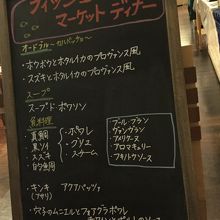 フィッシュ
マーケット ディナー
オードブル 〜カルパッチョ〜
・ホウボウとホタルイカのプロヴァンス風
・スズキとホタルイカのプロヴァンス風
スープ
スープドポワソン
魚料理
・真鯛
・黒ソイ
・スズキ
・的魚鯛
・ポワレ
・グリエ
・スチーム
・ブールブラン
・ヴァンブラン
・アメリケーヌ
・アロマキュリー
・キンキ アクアパッツァ
(アサリ)
・穴子のムニエルとフォアグラポワレ